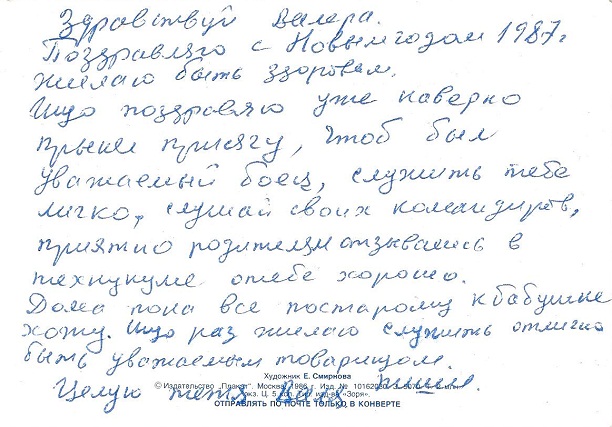 Здравствуй Валера.
Поздравляю с Новым годом 1987г
желаю быть здоровым.
Ищо поздравляю уже наверно
принел присягу, чтоб был
уважаемый боец, служить тебе
лигко, слушай своих командиров,
приятно родителям отзывались в
технукуме отебе хорошо.
Дома пока все постарому кбабушке
хожу. Ищо раз желаю служить отлично
быть уважаемым товарищом.
Целую тетя Валя
Художник Е. Смирнова
© Издательство «Плакат». Москва. 1986 г. Изд. №
Ц. 5 коп. «Заря».
ОТПРАВЛЯТЬ ПО ПОЧТЕ ТОЛЬКО В КОНВЕРТЕ